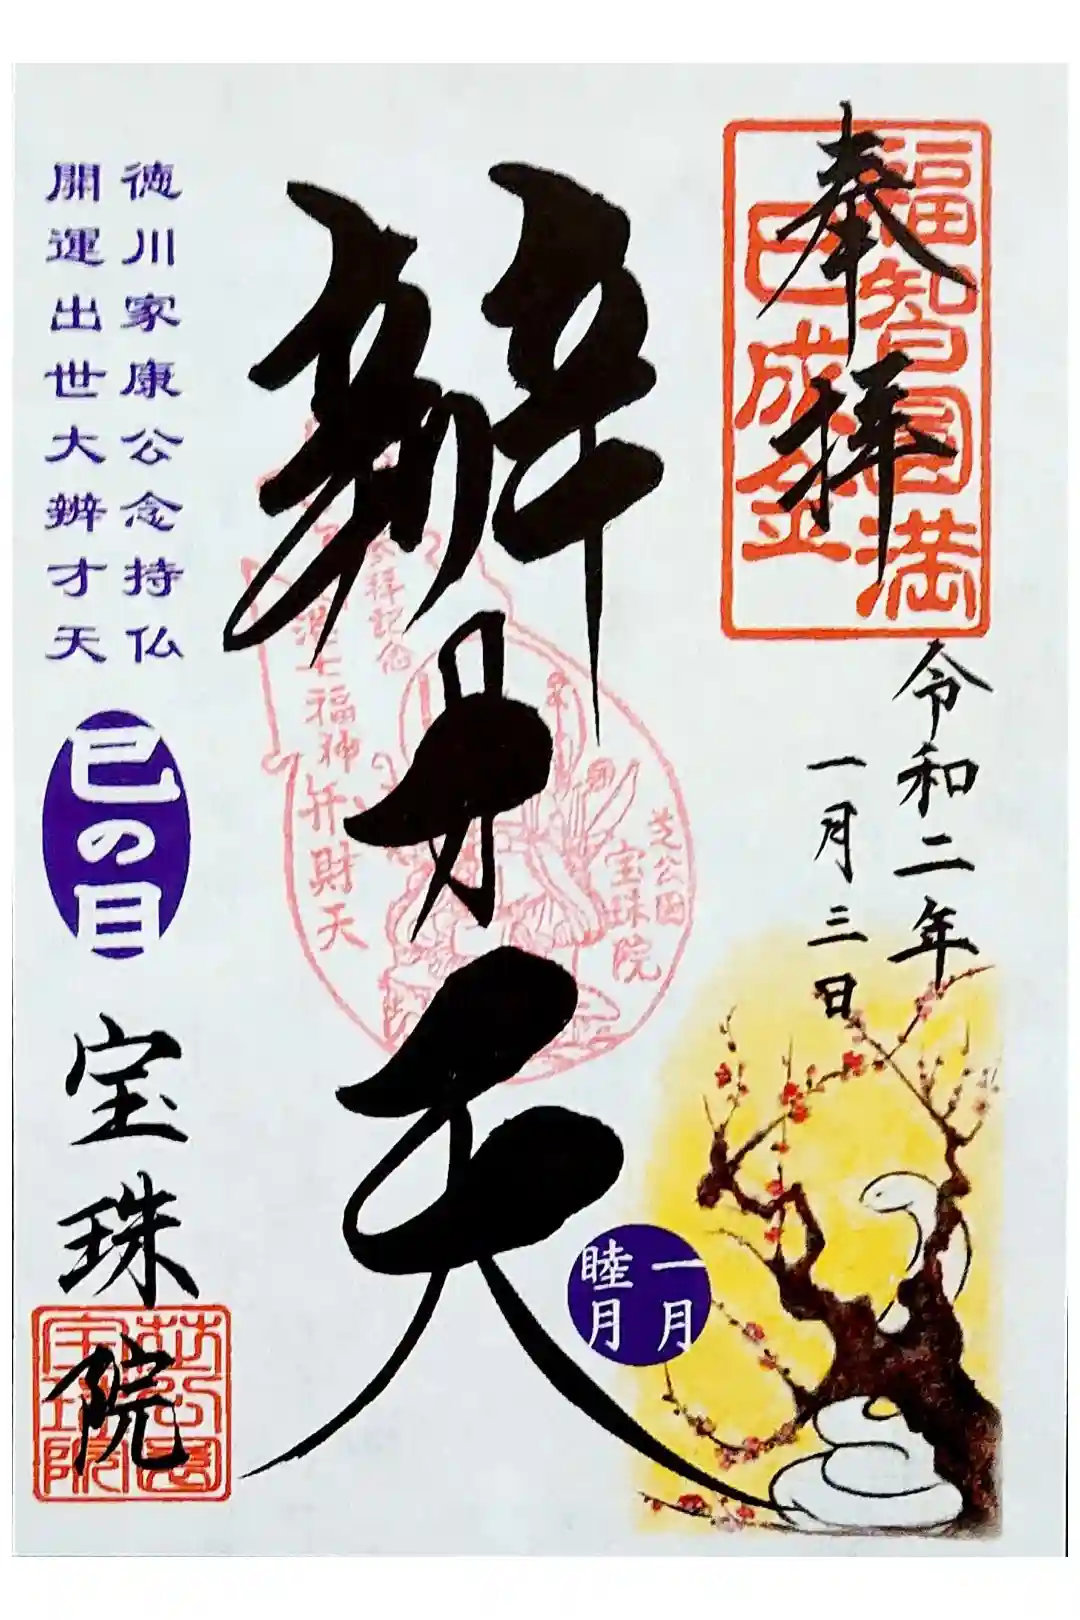 奉拝
福智円満
巳成金
令和二年
一月三日
辨才天
参拝記念
港七福神
弁財天
芝公園
宝珠院
一月
睦月
徳川家康公念持仏
開運出世大辨才天
巳の日
宝珠院
芝公園
宝珠院